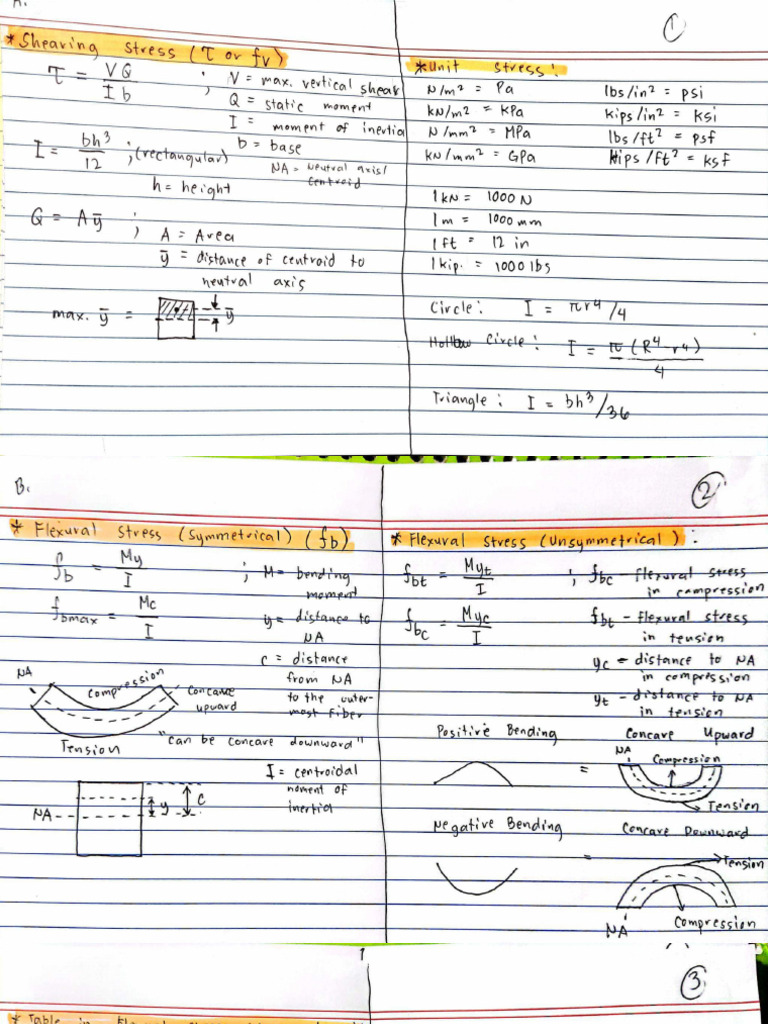 A.
①
*Shearing Stress (τ or fv)
τ = VQ / Ib ; V = max. vertical shear
Q = static moment
I = moment of inertia
b = base
I = bh³/12 ; (rectangular)
NA = Neutral axis/
Centroid
h = height
Q = Aȳ ; A = Area
ȳ = distance of centroid to
neutral axis
max. ȳ =
ȳ
*Unit Stress:
N/m² = Pa lbs/in² = psi
kN/m² = KPa kips/in² = ksi
N/mm² = MPa lbs/ft² = psf
kN/mm² = GPa kips/ft² = ksf
1 kN = 1000 N
1 m = 1000 mm
1 ft = 12 in
1 kip. = 1000 lbs
Circle: I = πr⁴/4
Hollow Circle: I = π (R⁴-r⁴) / 4
Triangle: I = bh³/36
B.
②
* Flexural Stress (Symmetrical) (fb)
fb = My / I ; M = bending
moment
fbmax = Mc / I
y = distance to
NA
c = distance
from NA
to the outer-
most fiber
NA
Compression
Concave
upward
Tension
"can be concave downward"
I = centroidal
moment of
inertia
NA
y
c
* Flexural Stress (Unsymmetrical):
fbt = Myt / I ; fbc - flexural stress
in compression
fbc = Myc / I
fbt - flexural stress
in tension
yc - distance to NA
in compression
yt - distance to NA
in tension
Positive Bending Concave Upward
NA
Compression
=
Tension
Negative Bending Concave Downward
=
Tension
NA
Compression
1
③
* Table in Flexural Stress